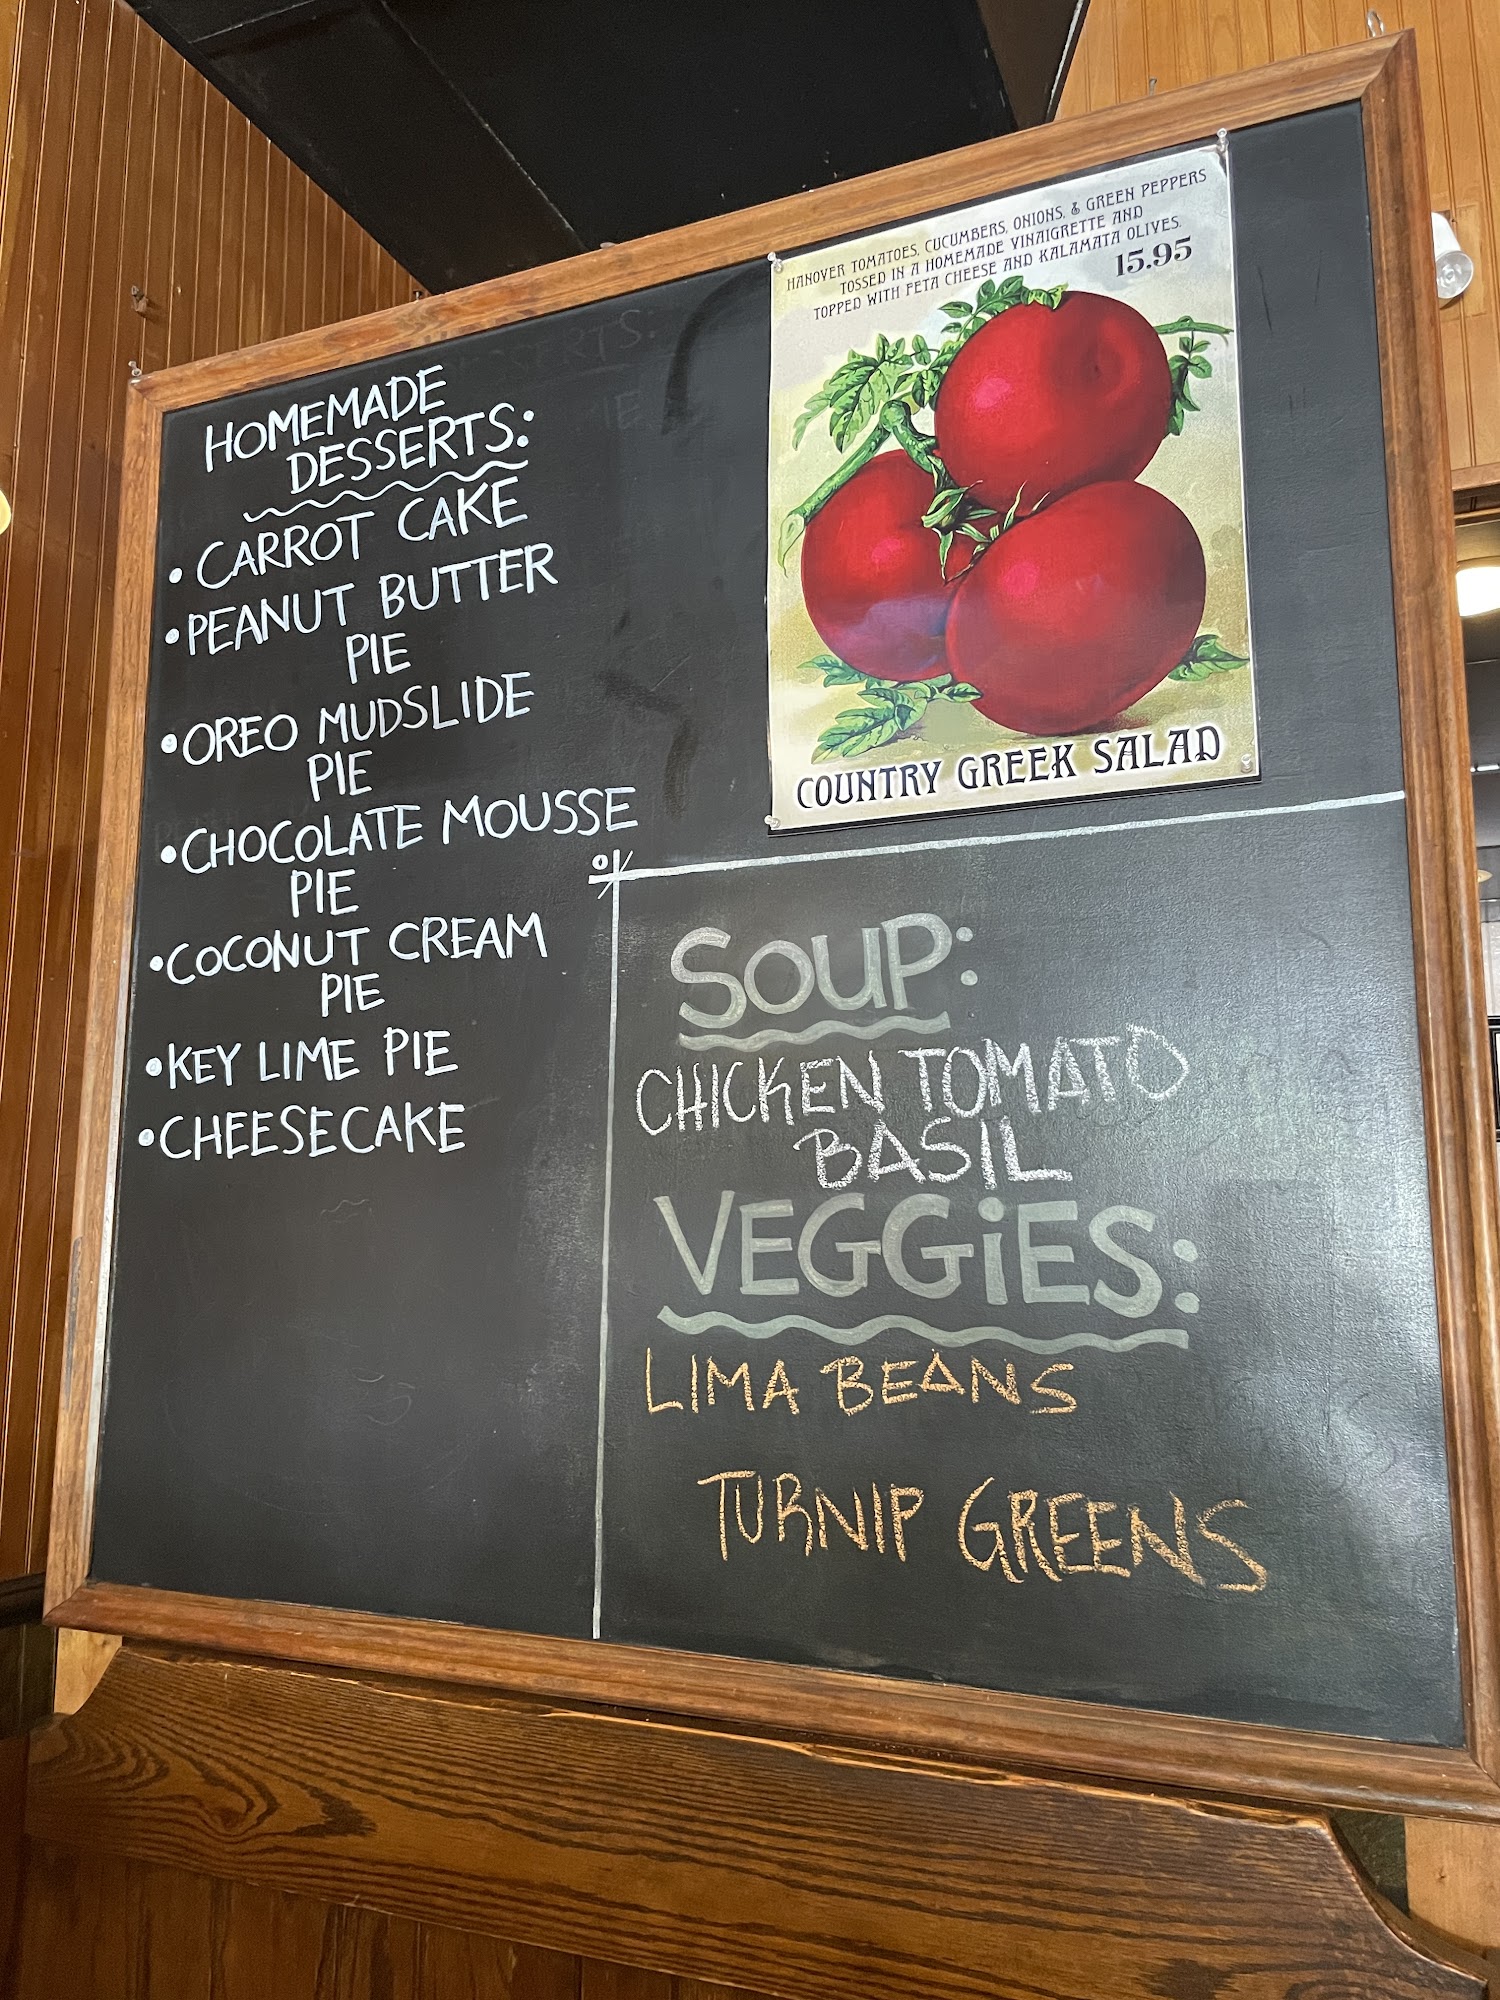 HOMEMADE
DESSERTS:
• CARROT CAKE
• PEANUT BUTTER
PIE
• OREO MUDSLIDE
PIE
• CHOCOLATE MOUSSE
PIE
• COCONUT CREAM
PIE
• KEY LIME PIE
• CHEESECAKE
HANOVER TOMATOES, CUCUMBERS, ONIONS, & GREEN PEPPERS
TOSSED IN A HOMEMADE VINAIGRETTE AND
TOPPED WITH FETA CHEESE AND KALAMATA OLIVES.
15.95
COUNTRY GREEK SALAD
SOUP:
CHICKEN TOMATO
BASIL
VEGGiES:
LIMA BEANS
TURNIP GREENS